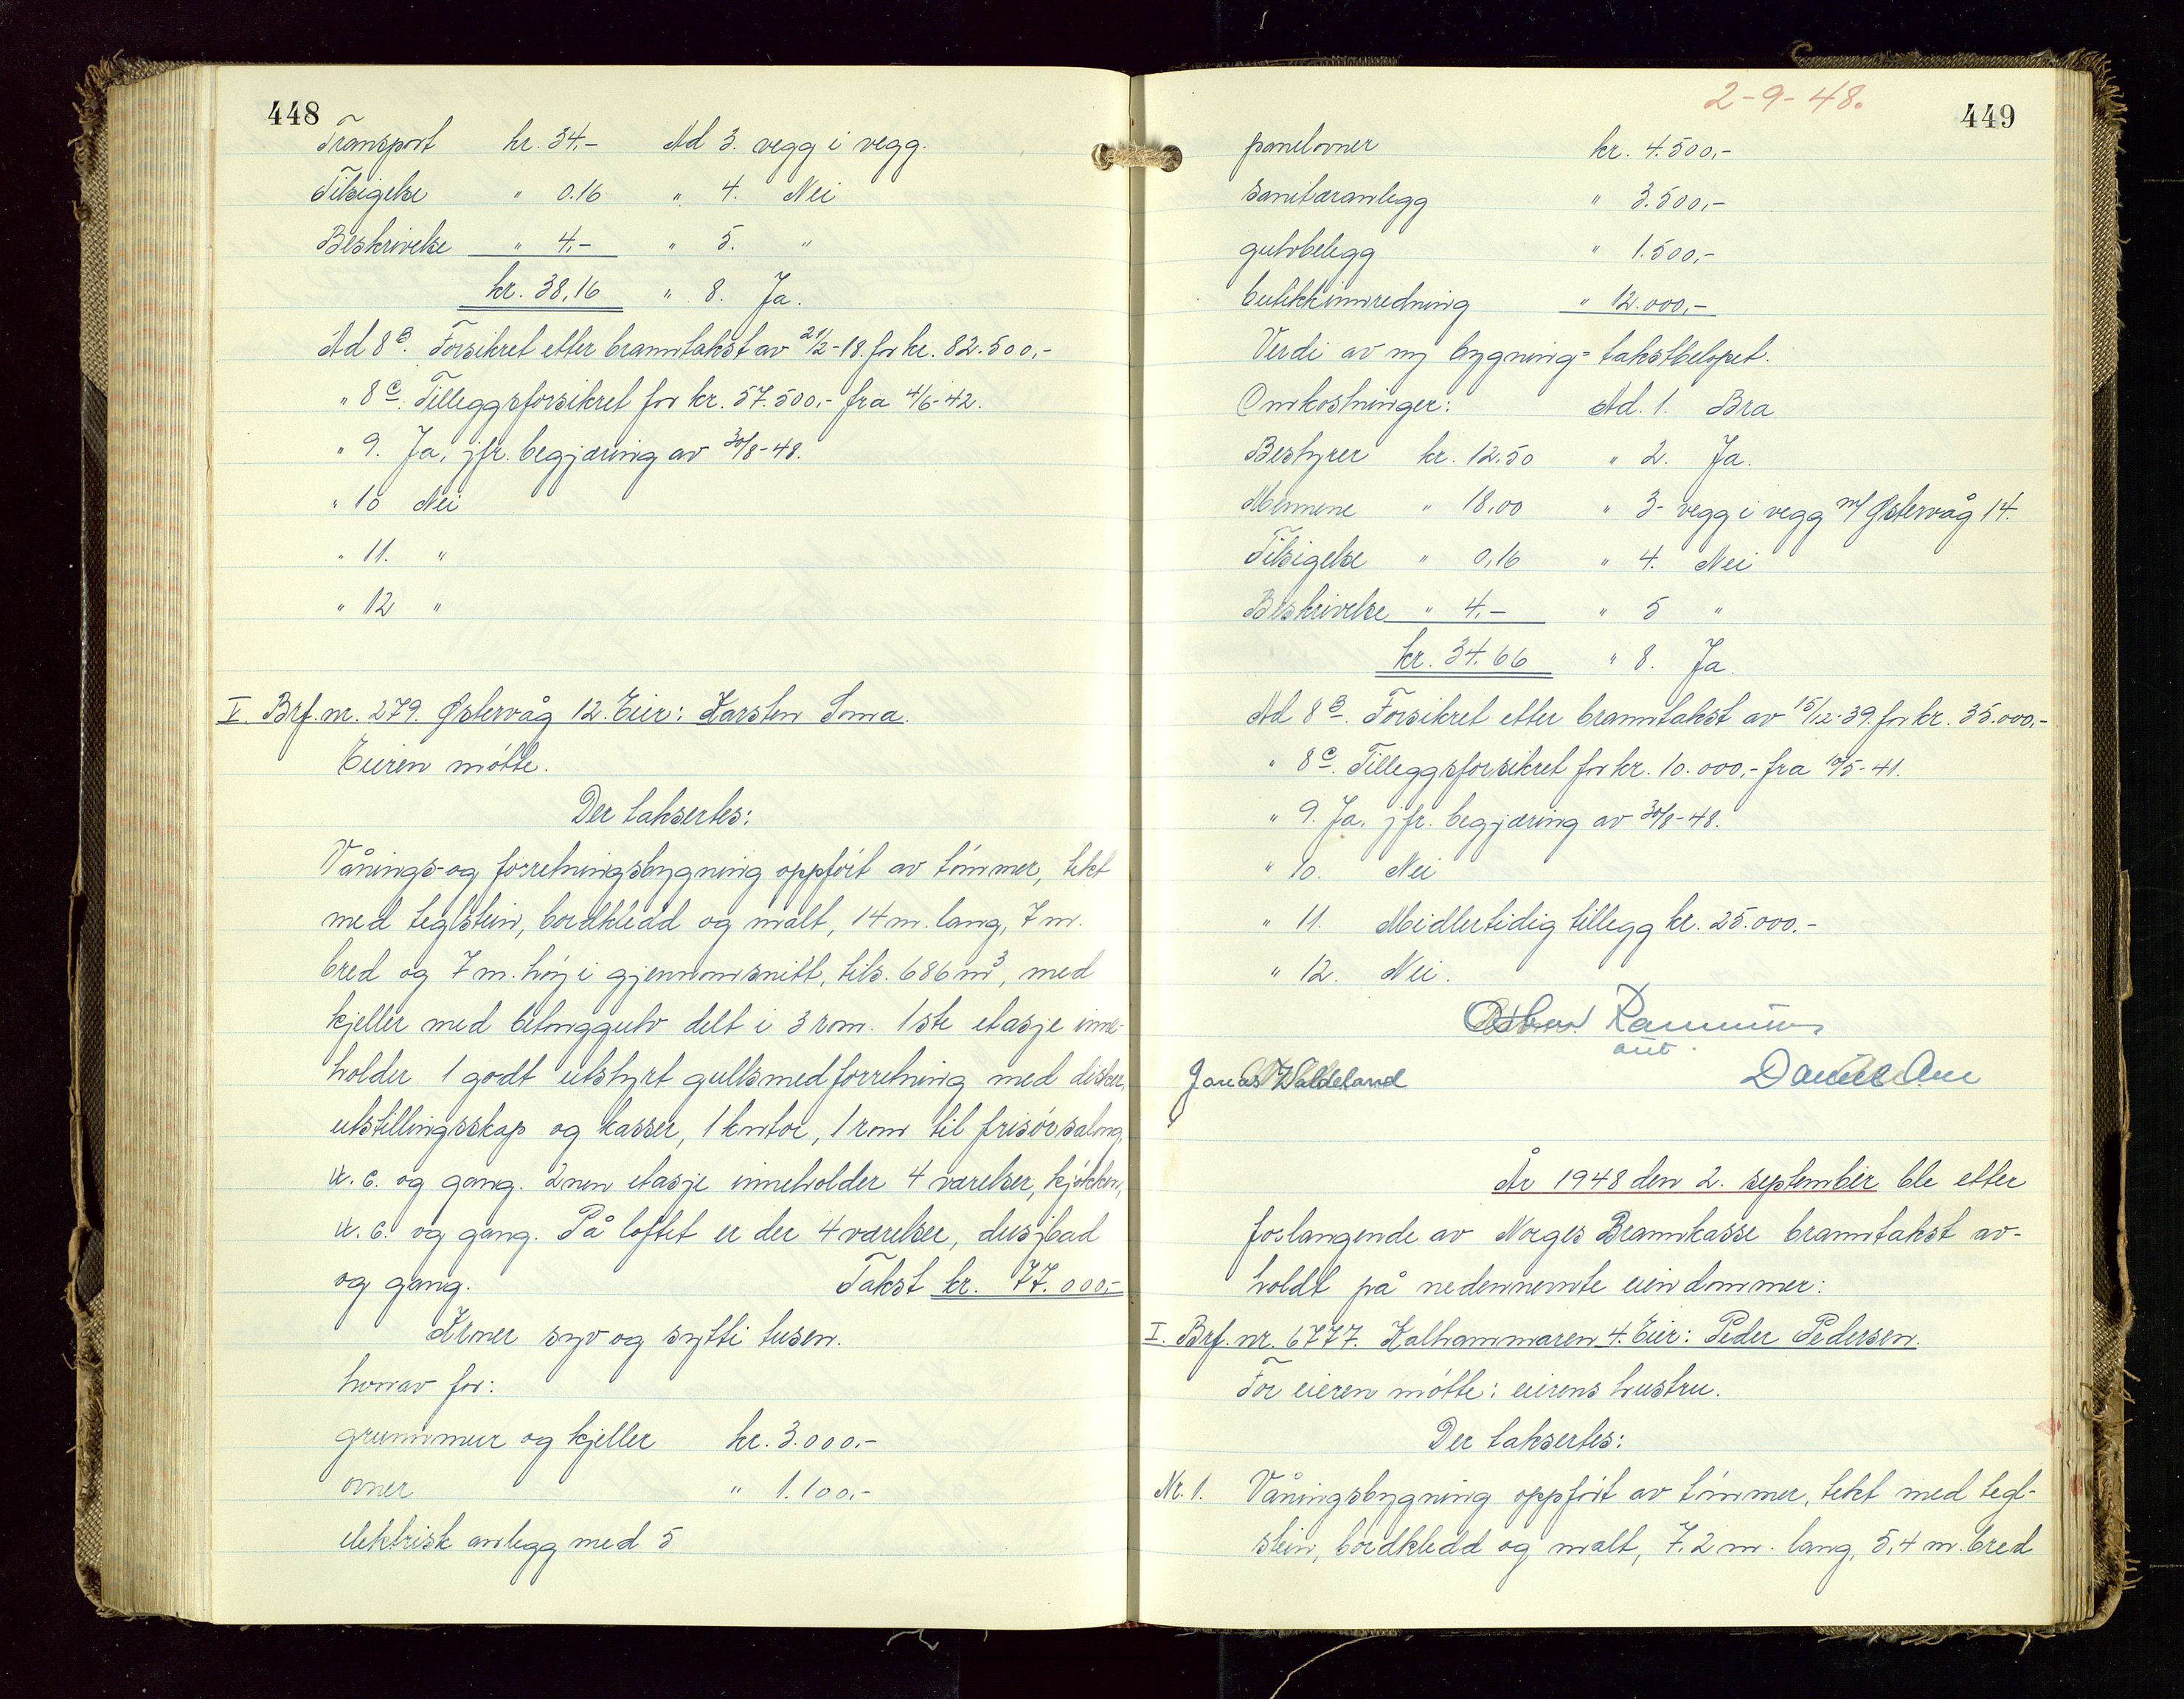 448
Transport kr. 34,- Ad 3. vegg i vegg.
Tilsigelse " 0.16 " 4. Nei
Beskrivelse " 4,- " 5. "
kr. 38,16 " 8. Ja.
Ad 8B. Forsikret etter branntakst av 21/2-18. for kr. 82.500,-
" 8C. Tilleggsforsikret for kr. 57.500,- fra 4/6-42.
" 9. Ja, jfr. begjæring av 30/8-48.
" 10 Nei
" 11. "
" 12 "
V. Brf. nr. 279. Østervåg 12. Eier: Karsten Soma.
Eieren møtte.
Der taksertes:
Vånings- og forretningsbygning oppført av tømmer, tekt
med teglstein, bordkledd og malt, 14 m. lang, 7 m.
bred og 7 m. høy i gjennomsnitt, tils. 686 m3, med
kjeller med betonggulv delt i 3 rom. 1ste etasje inne-
holder 1 godt utstyrt gullsmedforretning med disker,
utstillingsskap og kasser, 1 kontor, 1 rom til frisørsalong,
w.c. og gang. 2nen etasje inneholder 4 værelser, kjøkken,
w.c. og gang. På loftet er der 4 værelser, dusjbad
og gang. Takst kr. 77.000,-
Kroner syv og sytti tusen.
hvorav for:
grunnmur og kjeller kr. 3.000,-
ovner " 1.100,-
elektrisk anlegg med 5
2-9-48.
449
panelovner kr. 4.500,-
sanitæranlegg " 3.500,-
gulvbelegg " 1.500,-
butikkinnredning " 12.000,-
Verdi av ny bygning = takstbeløpet.
Omkostninger: Ad. 1. Bra
Bestyrer kr. 12,50 " 2. Ja.
Mennene " 18,00 " 3- vegg i vegg m/ Østervåg 14.
Tilsigelse " 0,16 " 4. Nei
Beskrivelse " 4,- " 5 "
kr. 34.66 " 8. Ja.
Ad 8B. Forsikret etter branntakst av 15/12-39. for kr. 35.000,-
" 8C. Tilleggsforsikret for kr. 10.000,- fra 10/5-41.
" 9. Ja. jfr. begjæring av 30/8-48.
" 10. Nei
" 11. Midlertidig tillegg kr. 25.000.-
" 12. Nei.
Rasmussen
Jonas Waldeland Daniel
År 1948 den 2. september ble etter
forlangende av Norges Brannkasse branntakst av-
holdt på nedennevnte eiendommer:
I. Brf. nr. 6777. Kalhammaren 4. Eier: Peder Pedersen.
For eieren møtte: eierens hustru.
Der taksertes:
Nr. 1. Våningsbygning oppført av tømmer, tekt med tegl-
stein, bordkledd og malt, 7,2 m. lang, 5,4 m. bred